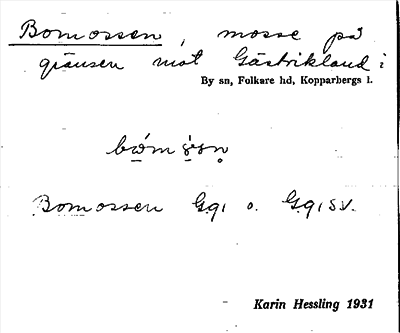 Bomossen, mosse på
gränsen mot Gästrikland i
By sn, Folkare hd, Kopparbergs l.
Bomossen Gq1 o. Gq1SV.
Karin Hessling 1931